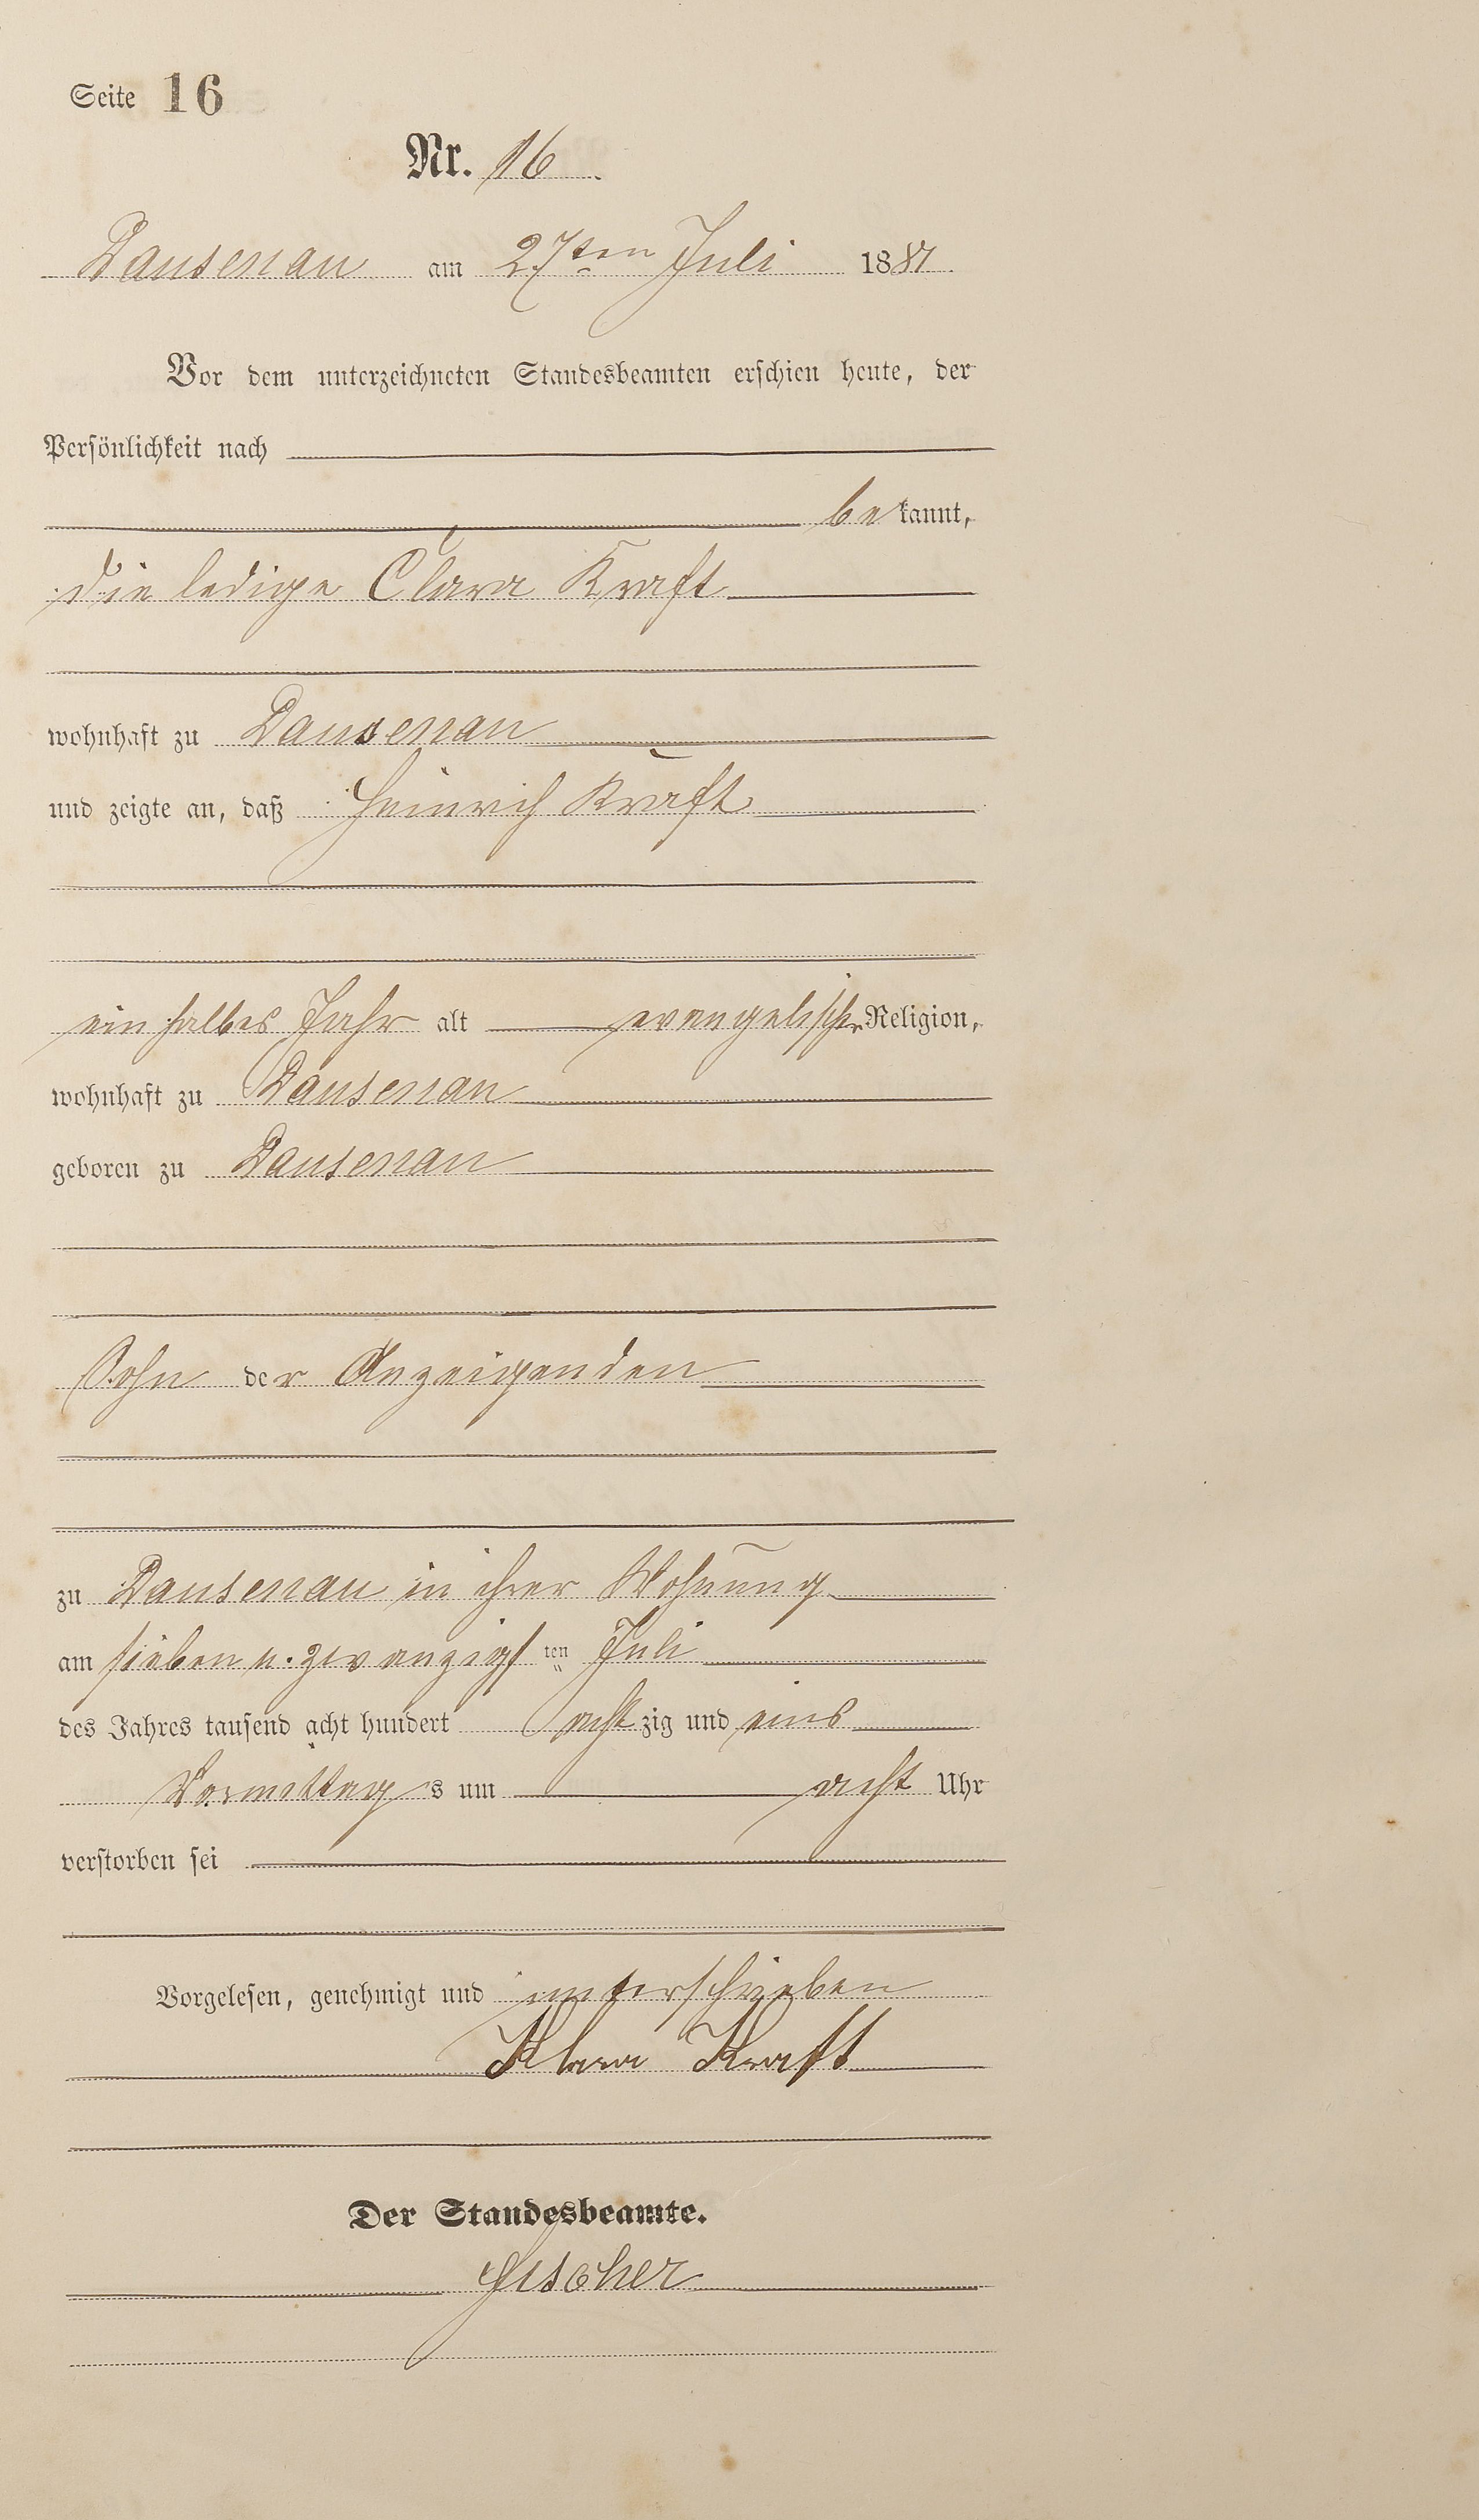 Seite 16
Nr. 16
Dausenau am 27ten Juli 1881.
Vor dem unterzeichneten Standesbeamten erschien heute, der
Persönlichkeit nach
bekannt,
die ledige Clara Kraft
wohnhaft zu Dausenau
und zeigte an, daß Heinrich Kraft
ein halbes Jahr alt evangelischer Religion,
wohnhaft zu Dausenau
geboren zu Dausenau
Sohn der Anzeigenden
zu Dausenau in ihrer Wohnung
am sieben u. zwanzigsten Juli
des Jahres tausend acht hundert achtzig und eins
Vormittags um acht Uhr
verstorben sei
Vorgelesen, genehmigt und unterschrieben
Klara Kraft
Der Standesbeamte.
Fischer